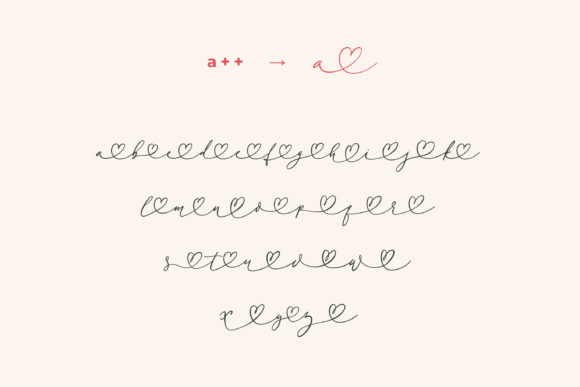 a++ → a♡
a♡b♡c♡d♡e♡f♡g♡h♡i♡j♡k♡
l♡m♡n♡o♡p♡q♡r♡
s♡t♡u♡v♡w♡
x♡y♡z♡